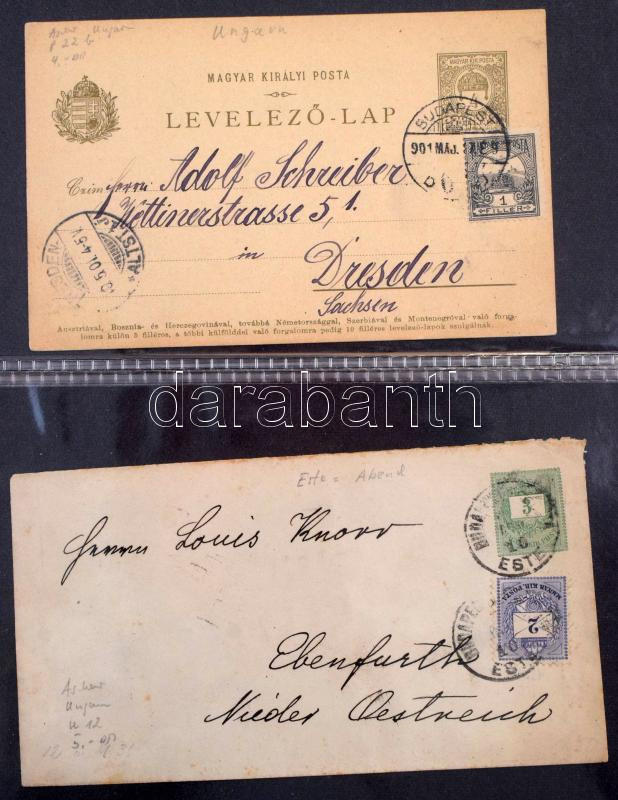 Ascher Ungarn
P 22 b
4.- DM
Ungarn
MAGYAR KIRÁLYI POSTA
LEVELEZŐ-LAP
MAGYAR KIR. POSTA
4
BUDAPEST
901 MÁJ.
POSTA
1
FILLÉR
Czim:
Herrn Adolf Schreiber
Wettinerstrasse 5, 1.
in
Dresden
Sachsen
DRESDEN-ALTST.
10.5.01. 4-5 V.
Ausztriával, Bosznia- és Herczegovinával, továbbá Németországgal, Szerbiával és Montenegróval való forga-
lomra külön 5 filléres, a többi külfölddel való forgalomra pedig 10 filléres levelező-lapok szolgálnak.
darabanth
Este = Abend
3
BUDAPEST
10
ESTE
Herrn Louis Knorr
MAGYAR KIR. POSTA
2
BUDAPEST
10
ESTE
Ebenfurth
Nieder Oestreich
Ascher
Ungarn
U 12
5.- DM